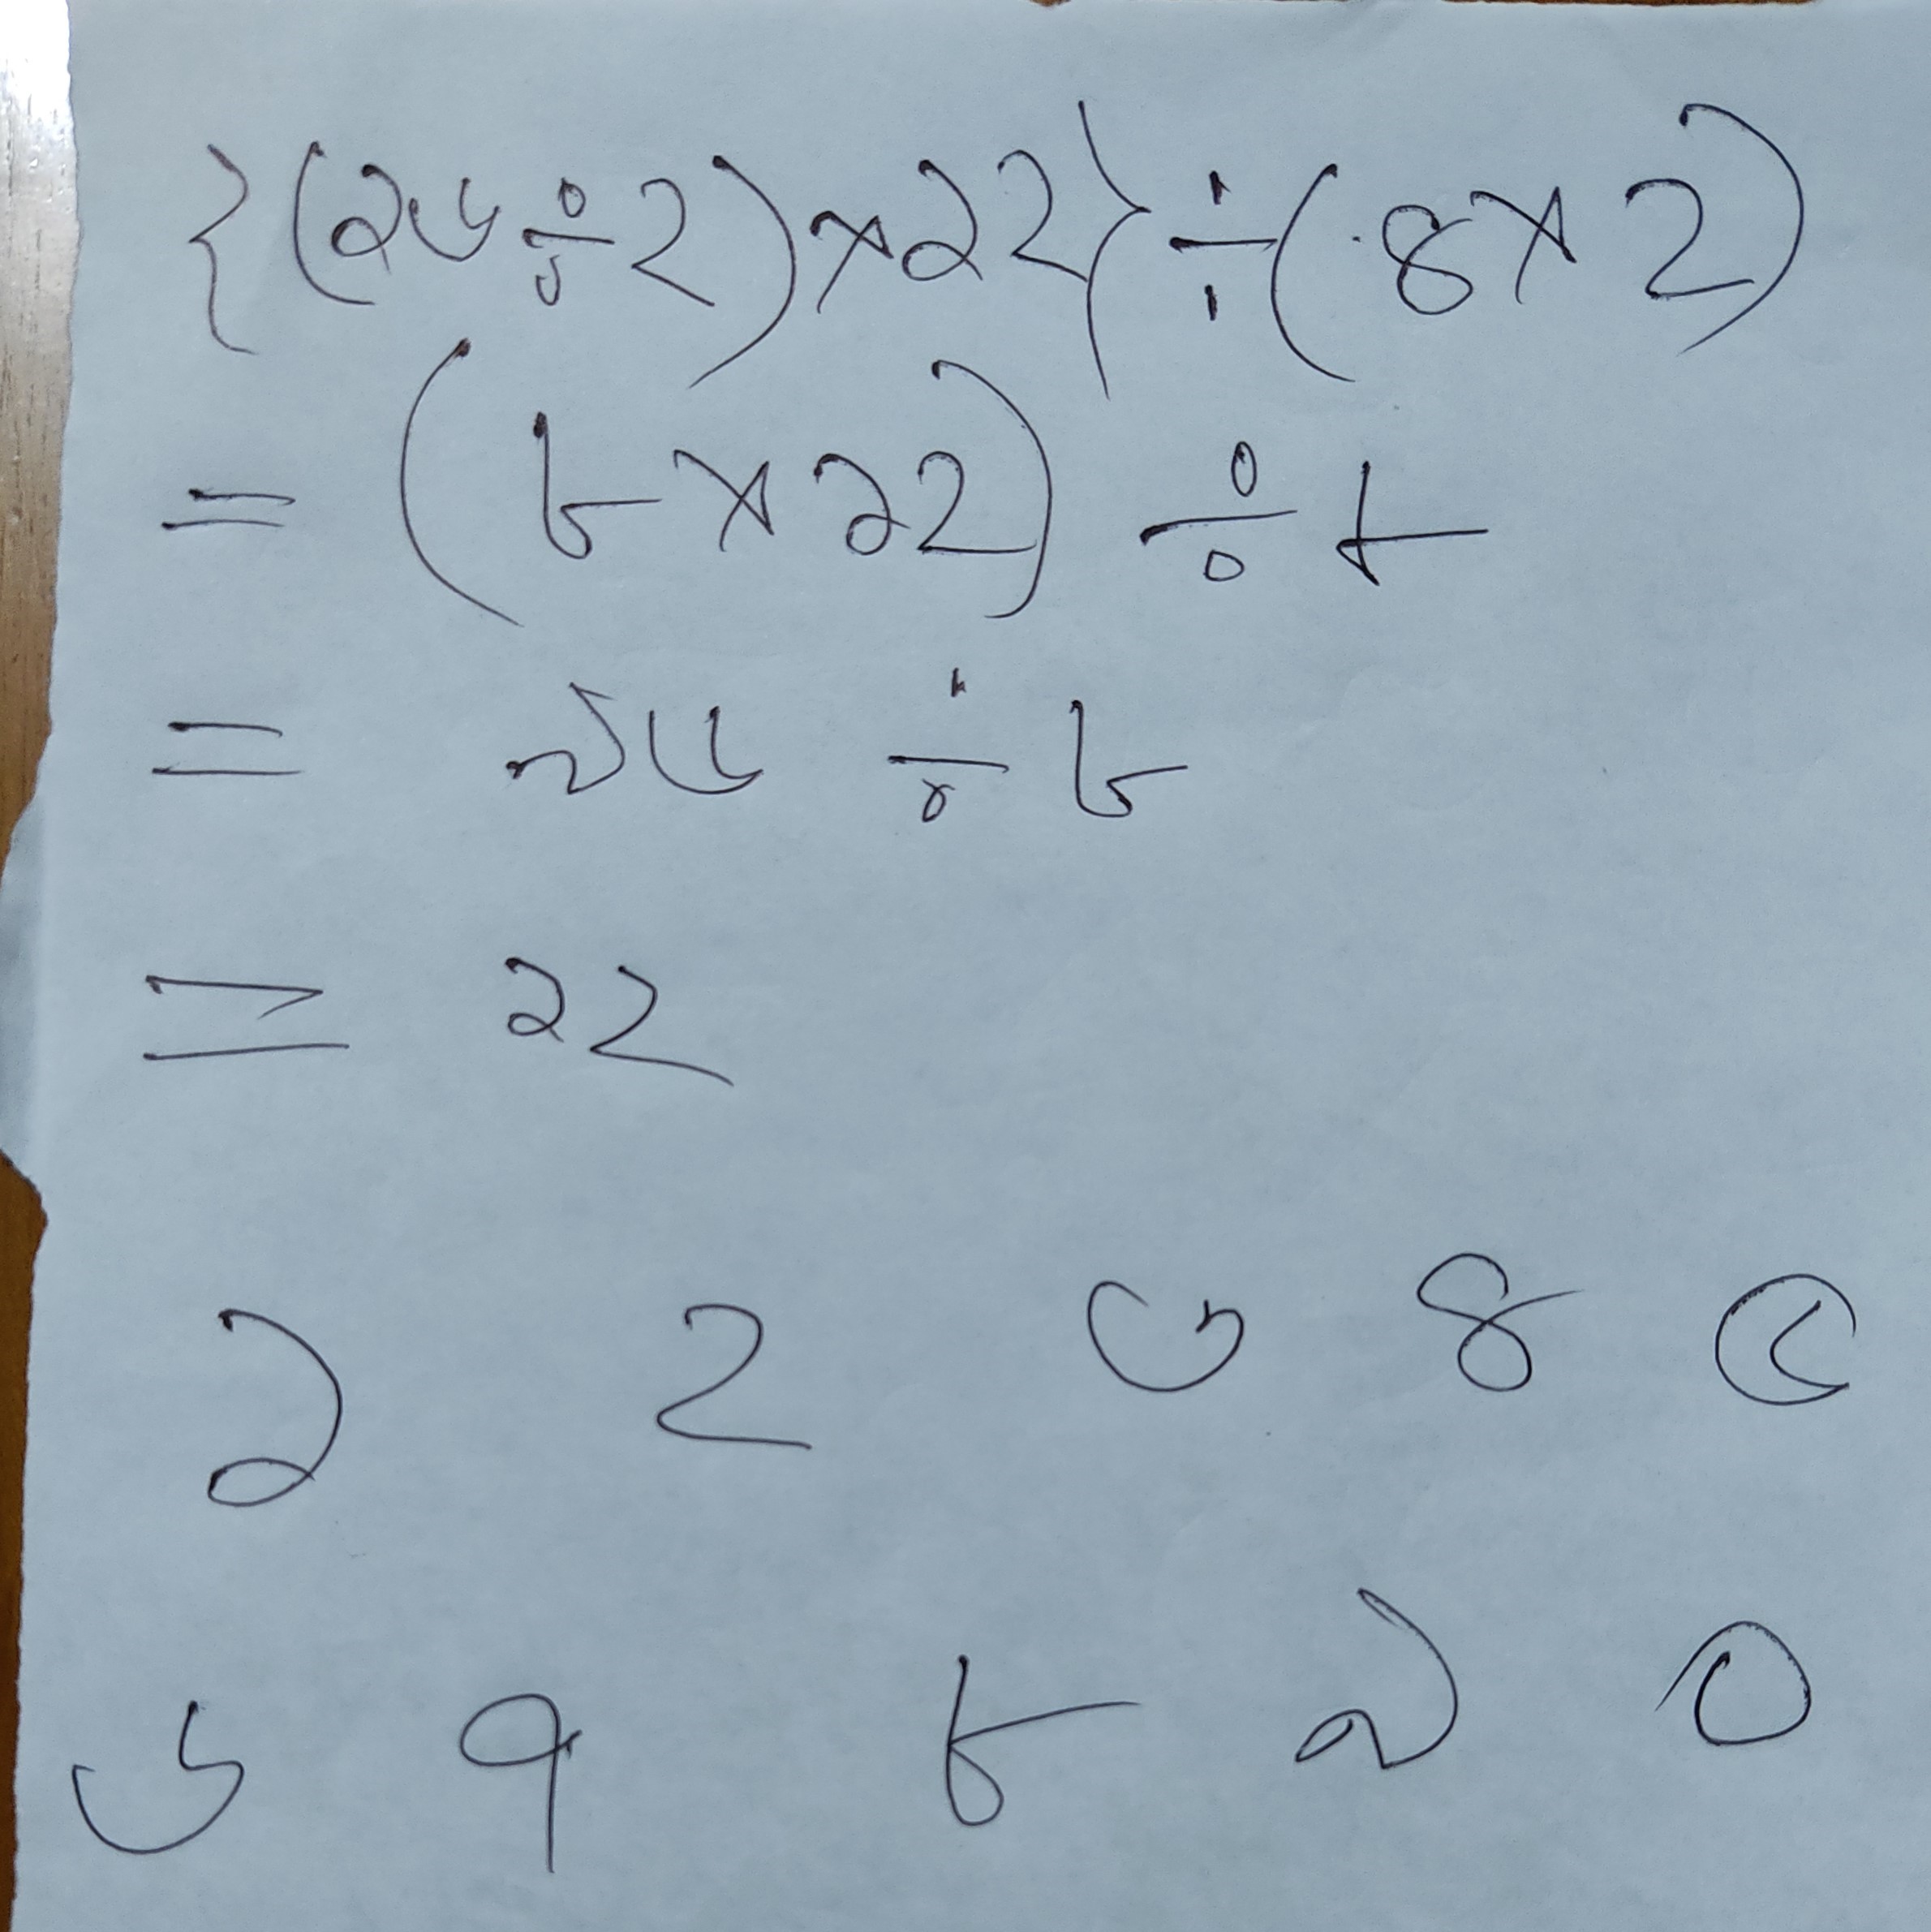 {(১৬÷২)×১২}÷(৪×২)
= (৮×১২)÷৮
= ৯৬÷৮
= ১২
১ ২ ৩ ৪ ৫
৬ ৭ ৮ ৯ ০